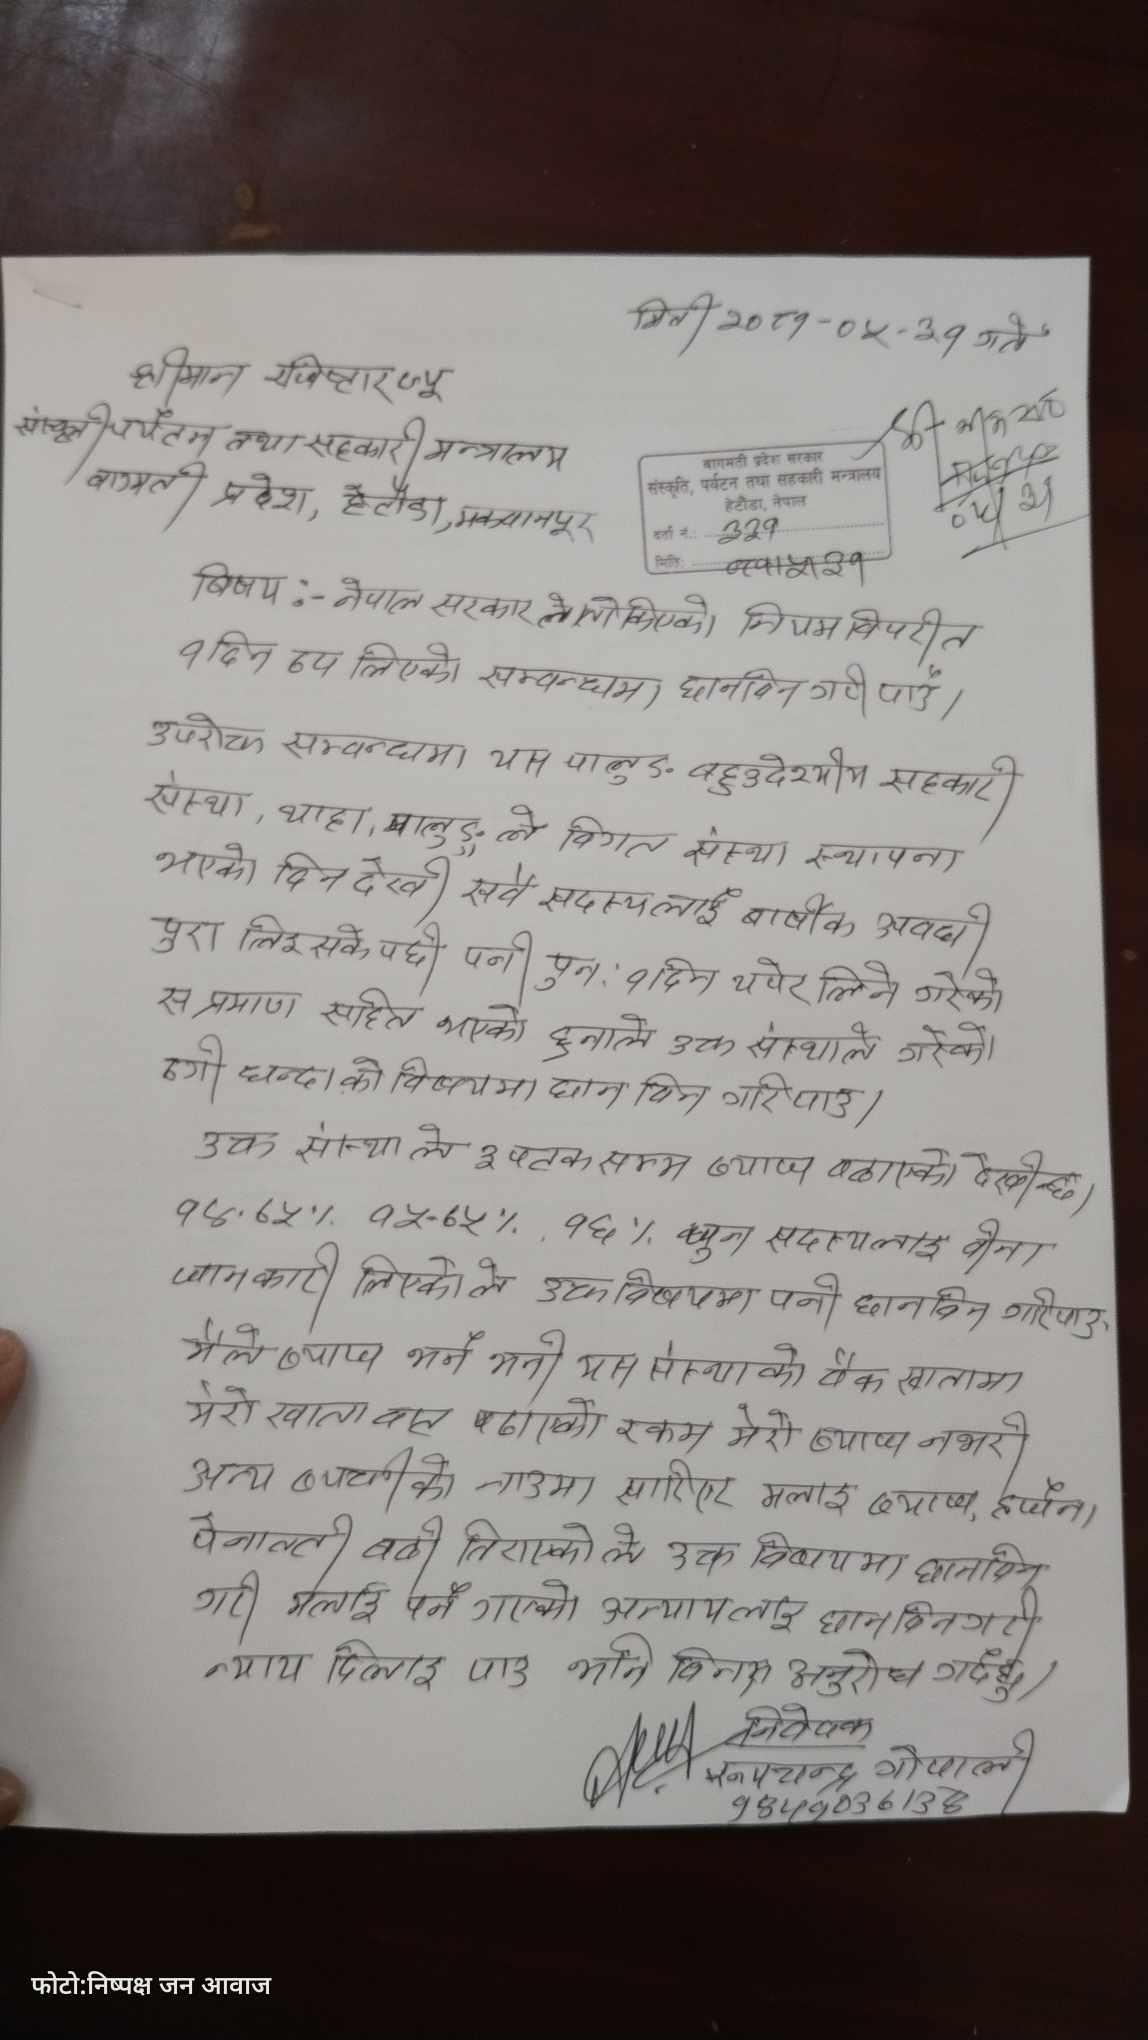 मिती २०८१-०५-३१ गते
श्रीमान रजिष्टारज्यू
संस्कृती पर्यटन तथा सहकारी मन्त्रालय
बाग्मती प्रदेश, हेटौडा, मकवानपुर
बागमती प्रदेश सरकार
संस्कृति, पर्यटन तथा सहकारी मन्त्रालय
हेटौंडा, नेपाल
दर्ता नं.: ३२१
मिति:
बिषय :- नेपाल सरकारले तोकिएको नियम विपरीत
१ दिन थप लिएको सम्वन्धमा छानविन गरी पाउँ।
उपरोक्त सम्वन्धमा यस पालुङ वहुउदेश्यीय सहकारी
संस्था, थाहा, पालुङ्ग ले विगत संस्था स्थापना
भएको दिन देखी सवै सदस्यलाई बार्षीक अवधी
पुरा लिइसकेपछी पनी पुन: १ दिन थपेर लिने गरेको
स प्रमाण सहित भएको हुनाले उक्त संस्थाले गरेको
ठगी धन्दाको विषयमा छान विन गरिपाउ।
उक्त संस्थाले ३ पटक सम्म ब्याज बढाएको देखीन्छ।
१४.७५% १५.७५% १६% कुन सदस्यलाइ वीना
जानकारी लिएकोले उक्त विषयमा पनी छानविन गरिपाउ
मैले ब्याज भर्न भनी यस संस्थाको बैंक खातामा
मेरो खाता वाट पठाएको रकम मेरो ब्याज नभरी
अन्य व्यक्तीको नाउमा सारिएर मलाइ ब्याज, हर्जना
पेनाल्टी बढी तिराएकोले उक्त विषयमा छानविन
गरी मलाई पर्न गएको अन्यायलाइ छानविन गरी
न्याय दिलाइ पाउ भनि विनम्र अनुरोध गर्दछु।
निवेदक
गोपाली
फोटो:निष्पक्ष जन आवाज